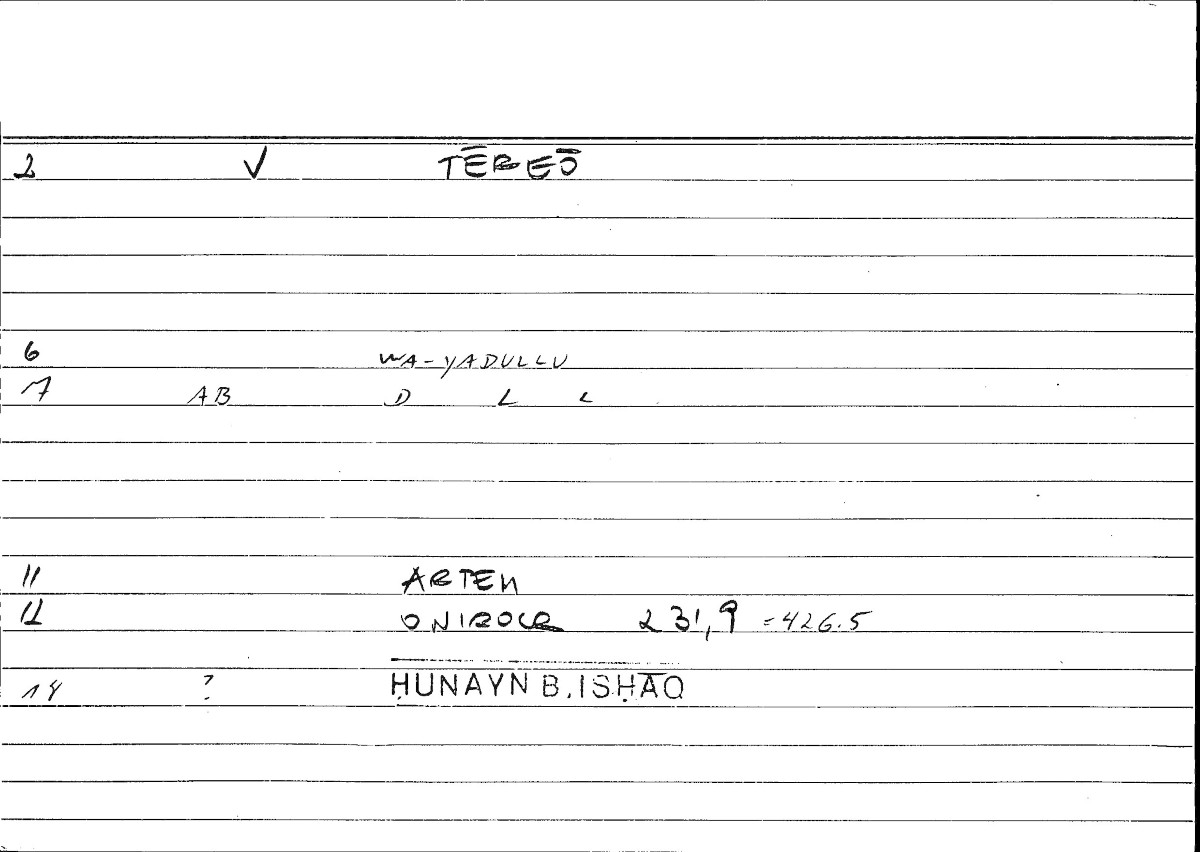 2 V TĒREŌ
6 WA-YADULLU
7 AB D L L
11 ARTEM
12 ONIROCR 231,9 =426.5
14 ? ḤUNAYN B. ISḤĀQ